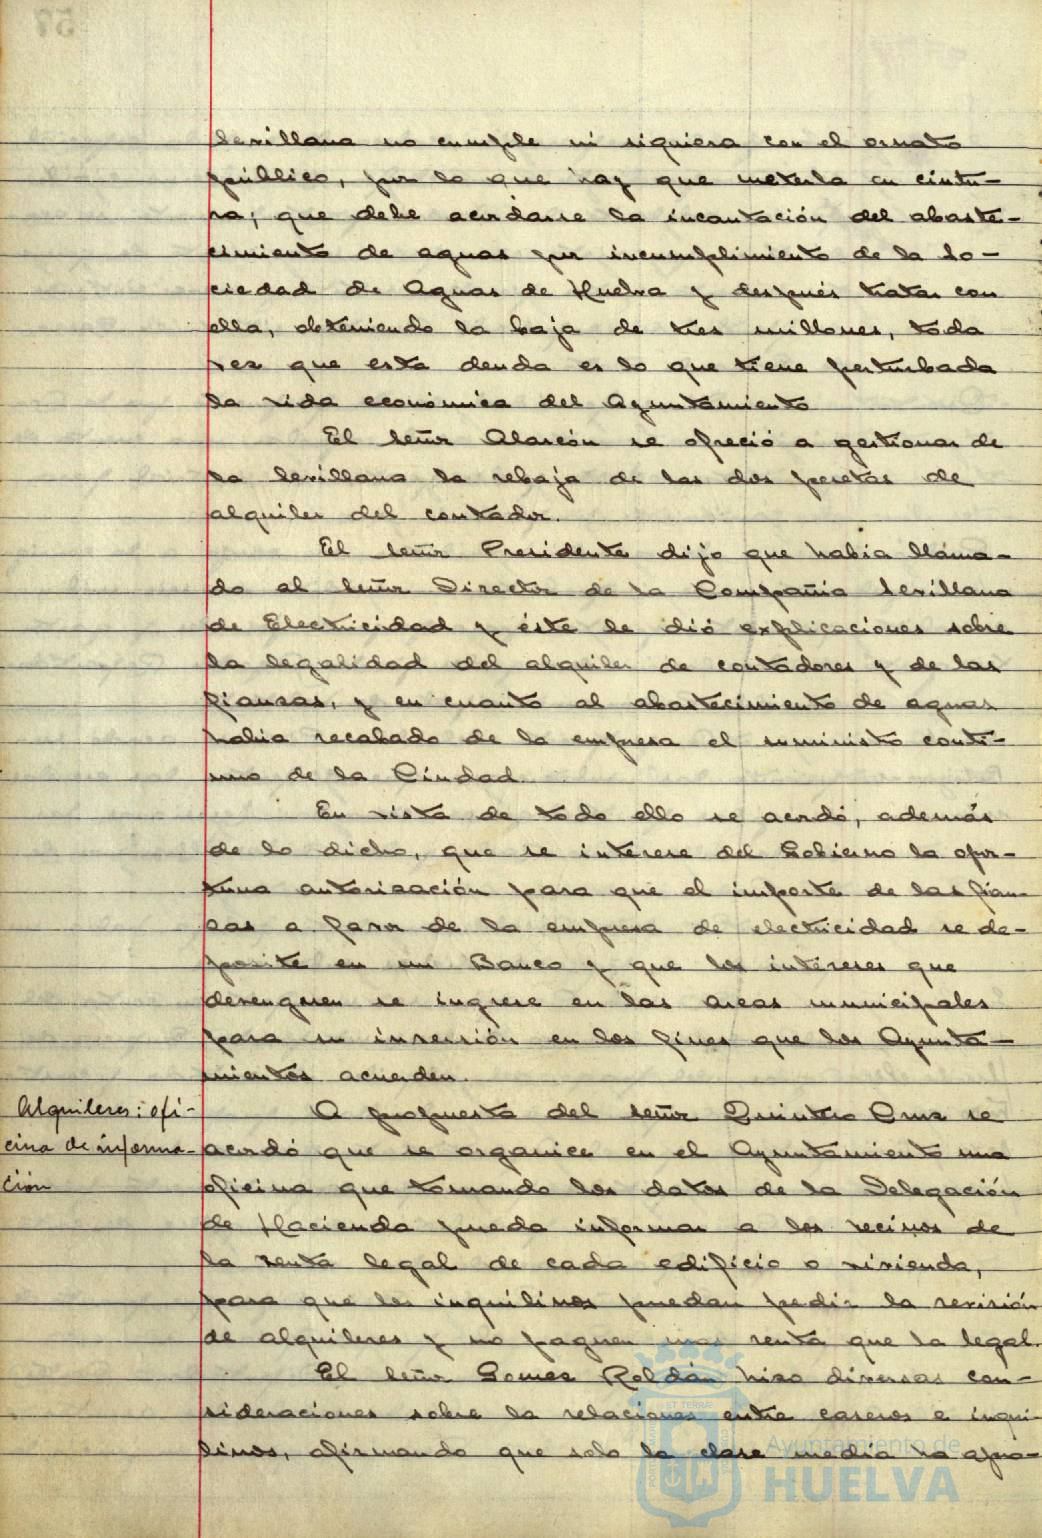 Sevillana no cumple ni siquiera con el ornato
público, por lo que hay que meterla en cintu-
ra; que debe acordarse la incautación del abaste-
cimiento de aguas por incumplimiento de la So-
ciedad de Aguas de Huelva y después tratar con
ella, obteniendo la baja de tres millones, toda
vez que esta deuda es lo que tiene perturbada
la vida económica del Ayuntamiento
El señor Alarcón se ofreció a gestionar de
la Sevillana la rebaja de las dos pesetas de
alquiler del contador.
El señor Presidente dijo que había llama-
do al señor Director de la Compañia Sevillana
de Electricidad y éste le dió explicaciones sobre
la legalidad del alquiler de contadores y de las
fianzas, y en cuanto al abastecimiento de aguas
habia recabado de la empresa el suministro conti-
nuo de la Ciudad.
En vista de todo ello se acordó, además
de lo dicho, que se interese del Gobierno la opor-
tuna autorización para que el importe de las fian-
zas a favor de la empresa de electricidad se de-
posite en un Banco y que los intereses que
devenguen se ingrese en las arcas municipales
para su inversión en los fines que los Ayunta-
mientos acuerden.
Alquileres: ofi-
cina de informa-
ción
A propuesta del señor Quintero Cruz se
acordó que se organice en el Ayuntamiento una
oficina que tomando los datos de la Delegación
de Hacienda pueda informar a los vecinos de
la renta legal de cada edificio o vivienda,
para que los inquilinos puedan pedir la revisión
de alquileres y no paguen mas renta que la legal.
El señor Gomez Roldán hizo diversas con-
sideraciones sobre la relaciones entre caseros e inqui-
linos, afirmando que solo la clase media ha apro-
Ayuntamiento de
HUELVA